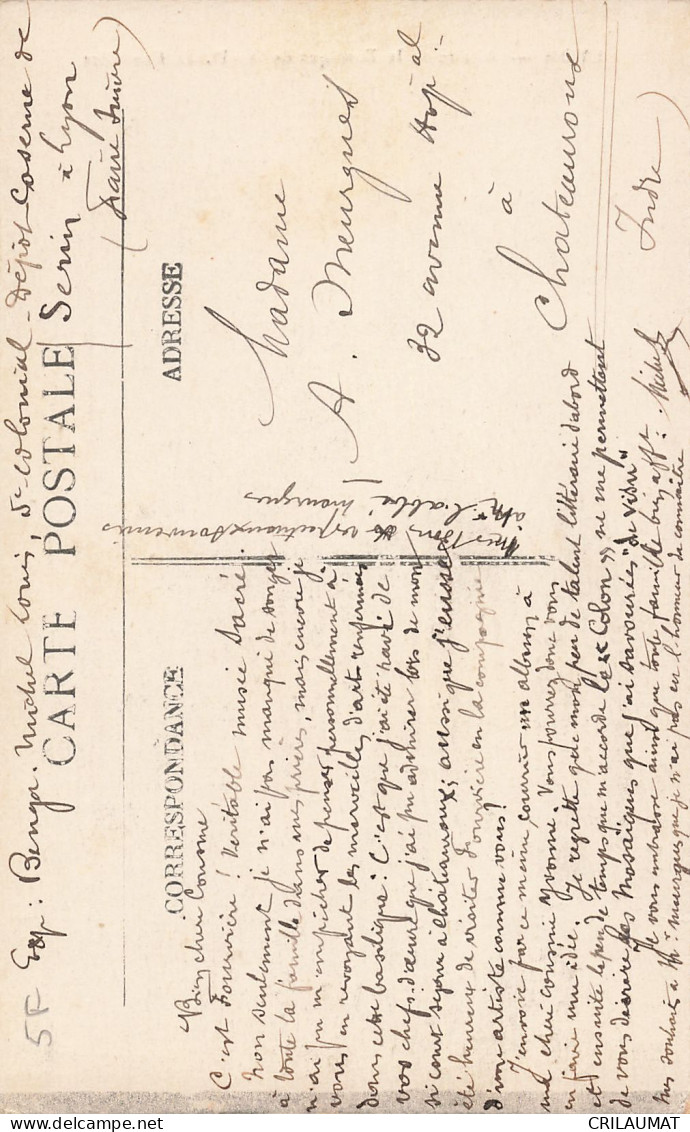 Exp: Benza. Michel Louis, 5e colonial - Dépôt Caserne de
Serin à Lyon
(Faire suivre)
CARTE POSTALE
CORRESPONDANCE
ADRESSE
Bien chère Cousine
C'est Fourvière! Véritable musée sacré.
Non seulement je n'ai pas manqué de songer
à toute la famille dans mes prières, mais encore je
n'ai pu m'empêcher de penser personnellement à
vous en revoyant les merveilles d'art renfermées
dans cette basilique: C'est que j'ai été ravi de
vos chefs-d'œuvre que j'ai pu admirer lors de mon
si court séjour à Châteauroux; aussi que j'eusse
été heureux de visiter Fourvière en la compagnie
d'une artiste comme vous!
J'envoie par ce même courrier un album à
ma chère cousine Yvonne. Vous pourrez donc vous
en faire une idée. Je regrette que mon peu de talent littéraire d'abord
et ensuite le peu de temps que m'accorde le "Colon" ne me permettent
de vous décrire les Mosaïques que j'ai savourées "de visu"
Je vous embrasse ainsi que toute famille bien afft. Michel
Mes souhaits à Mr. Meurgues que je n'ai pas eu l'honneur de connaître
mes bons et respectueux souvenirs
à Mr l'abbé Meurgues
Madame
A. Meurgues
32 avenue Hopital
à
Chateauroux
Indre
5F
CRILAUMAT